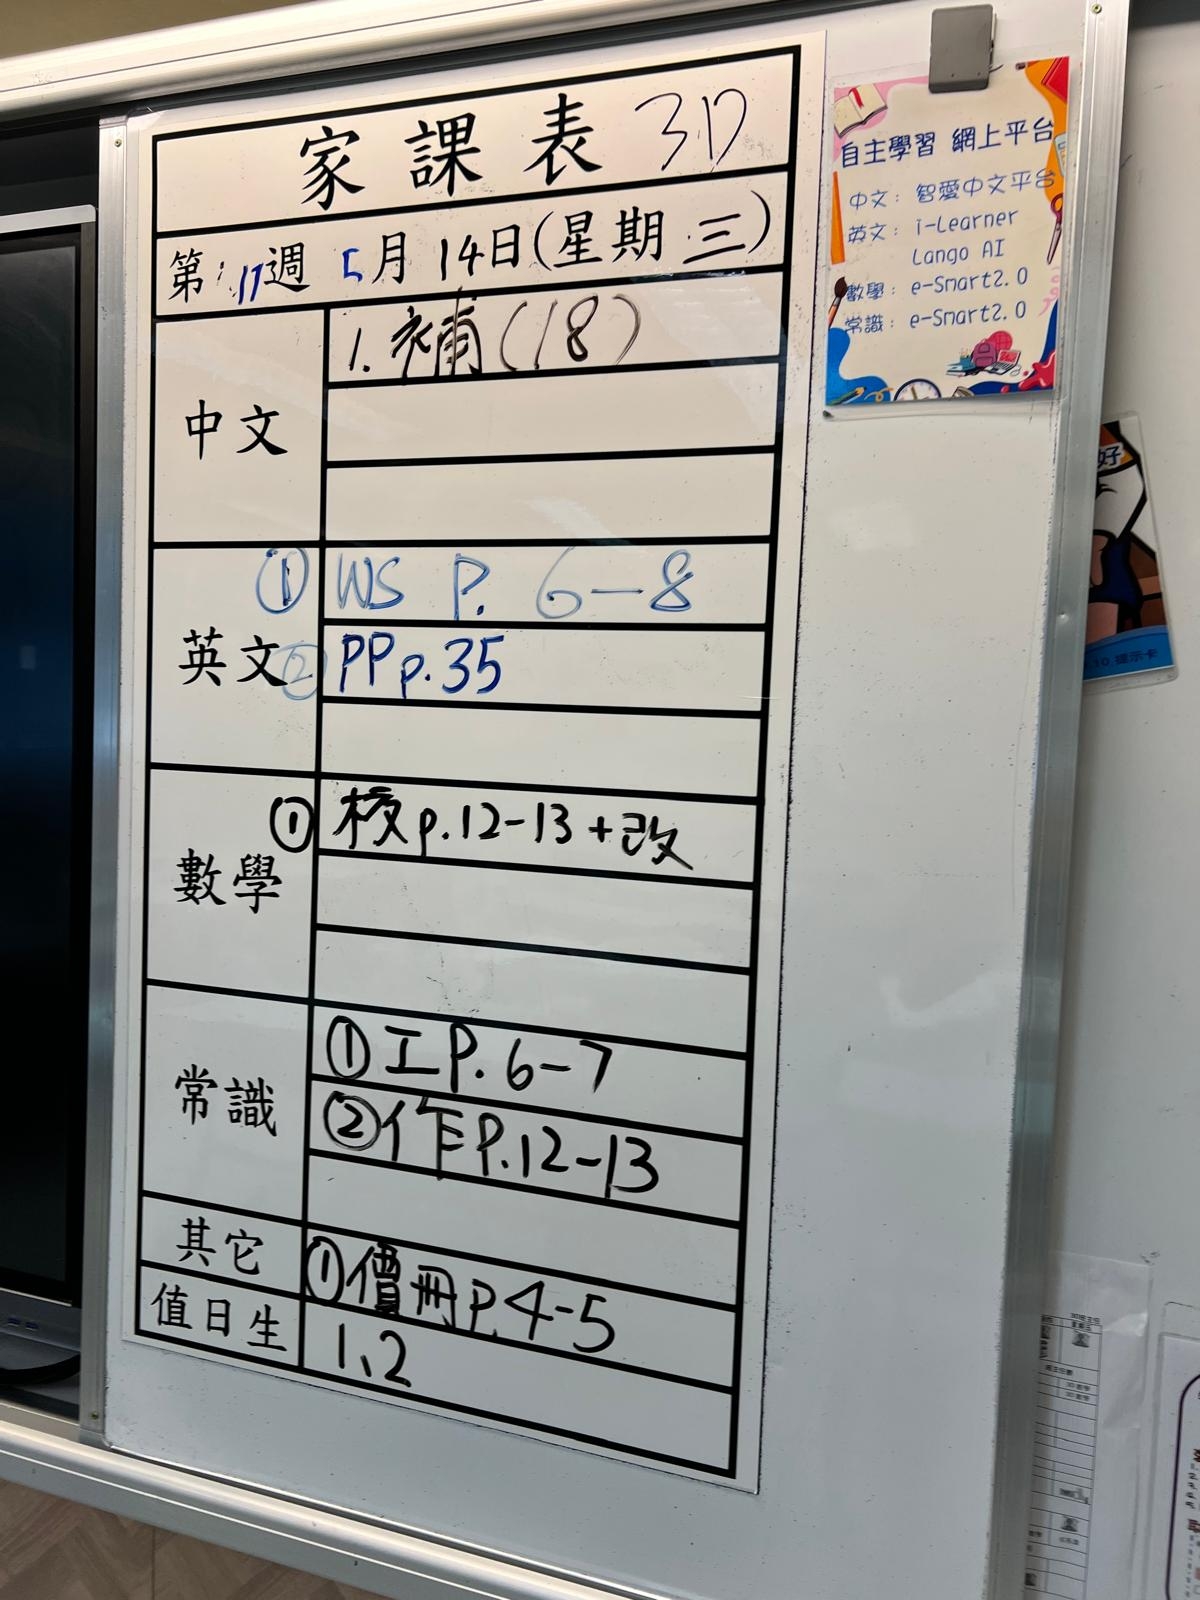 家課表 3D
第:17週 5月14日(星期三)
中文
1. 補(18)
英文
① WS P. 6-8
② PP p.35
數學
① 核p.12-13+改
常識
①工P.6-7
②作P.12-13
其它
①價冊p.4-5
值日生
1、2
自主學習 網上平台
中文: 智愛中文平台
英文: i-Learner
Lango AI
數學: e-Smart2.0
常識: e-Smart2.0
好
.10.提示卡